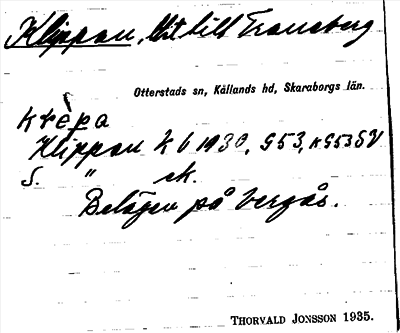 Klippan, lit till Traneberg
Otterstads sn, Kållands hd, Skaraborgs län.
Klippan k 6 1930, G53, KG53SV
S. " sk.
Belägen på bergås.
THORVALD JONSSON 1935.